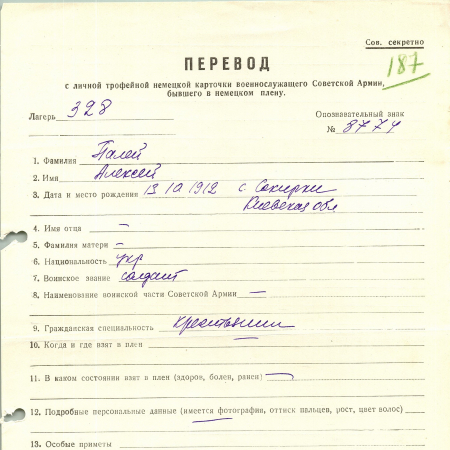 Сов. секретно
187
ПЕРЕВОД
с личной трофейной немецкой карточки военнослужащего Советской Армии,
бывшего в немецком плену.
Лагерь 328
Опознавательный знак
№ 8774
1. Фамилия Палей
2. Имя Алексей
3. Дата и место рождения 13 10 1912 с. Сокирки
Киевская обл
4. Имя отца —
5. Фамилия матери —
6. Национальность укр
7. Воинское звание солдат
8. Наименование воинской части Советской Армии —
9. Гражданская специальность крестьянин
10. Когда и где взят в плен —
11. В каком состоянии взят в плен (здоров, болен, ранен) —
12. Подробные персональные данные (имеется фотография, оттиск пальцев, рост, цвет волос)
13. Особые приметы